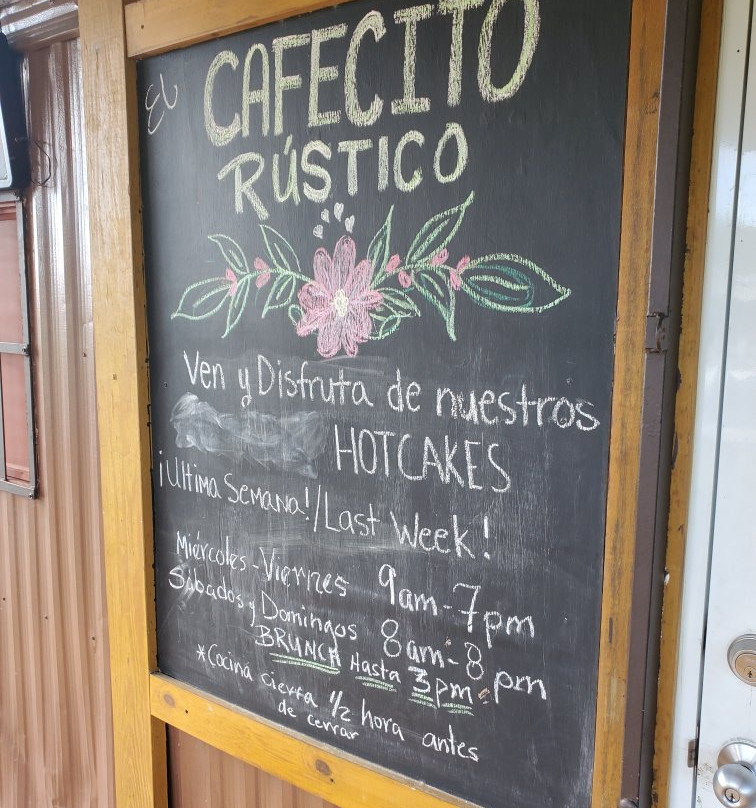 EL CAFECITO
RÚSTICO
Ven y Disfruta de nuestros
HOTCAKES
¡Ultima Semana!/Last Week!
Miércoles-Viernes 9am-7pm
Sábados y Domingos 8am-8pm
BRUNCH Hasta 3pm
*Cocina cierra 1/2 hora antes
de cerrar